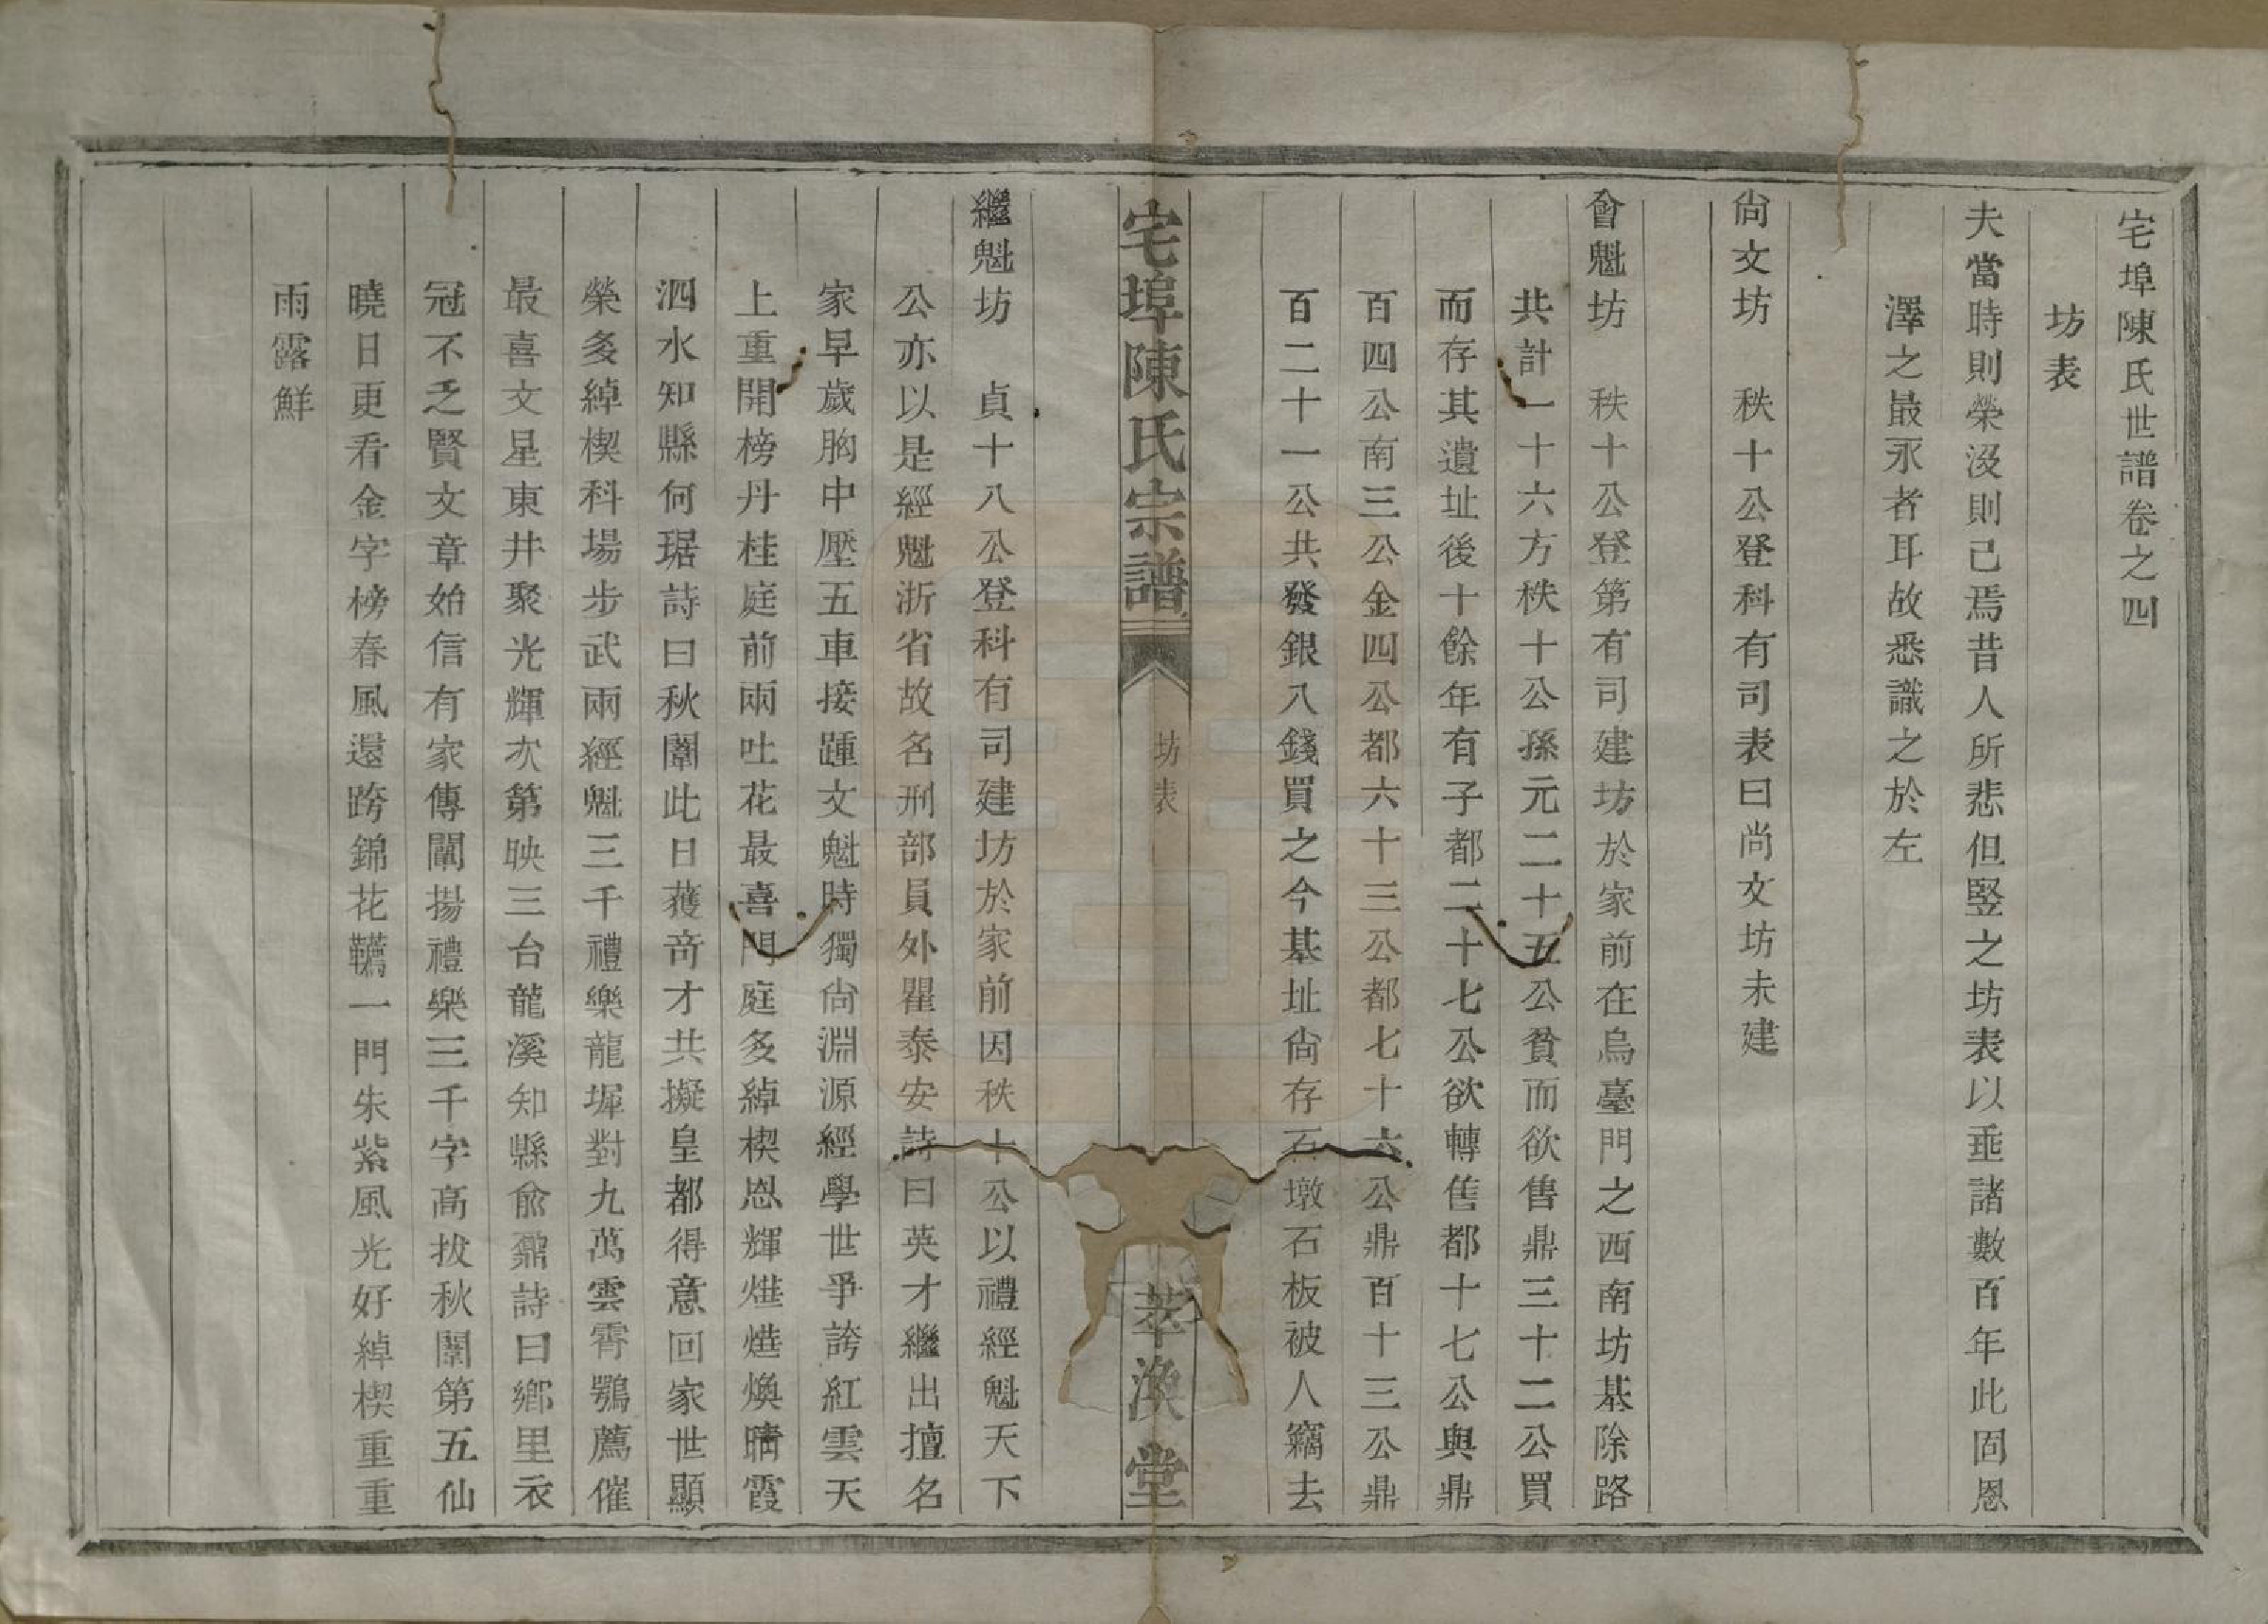 宅埠陳氏世譜卷之四
坊表
夫當時則榮沒則已焉昔人所悲但竪之坊表以垂諸數百年此固恩
澤之最永者耳故悉識之於左
尙文坊 秩十公登科有司表曰尚文坊未建
會魁坊 秩十公登第有司建坊於家前在烏臺門之西南坊基除路
共計一十六方秩十公孫元二十五公貧而欲售鼎三十二公買
而存其遺址後十餘年有子都二十七公欲轉售都十七公與鼎
百四公南三公金四公都六十三公都七十六公鼎百十三公鼎
百二十一公共發銀八錢買之今基址尙存石墩石板被人竊去
宅埠陳氏宗譜 坊表 萃渙堂
繼魁坊 貞十八公登科有司建坊於家前因秩十公以禮經魁天下
公亦以是經魁浙省故名刑部員外瞿泰安詩曰英才繼出擅名
家早歲胸中壓五車接踵文魁時獨尙淵源經學世爭誇紅雲天
上重開榜丹桂庭前兩吐花最喜門庭多綽楔恩輝燁燁煥晴霞
泗水知縣何琚詩曰秋闈此日獲竒才共擬皇都得意回家世顯
榮多綽楔科場步武兩經魁三千禮樂龍墀對九萬雲霄鶚薦催
最喜文星東井聚光輝次第映三台龍溪知縣俞鼐詩曰鄉里衣
冠不乏賢文章始信有家傳闡揚禮樂三千字高拔秋闈第五仙
曉日更看金字榜春風還跨錦花韉一門朱紫風光好綽楔重重
雨露鮮